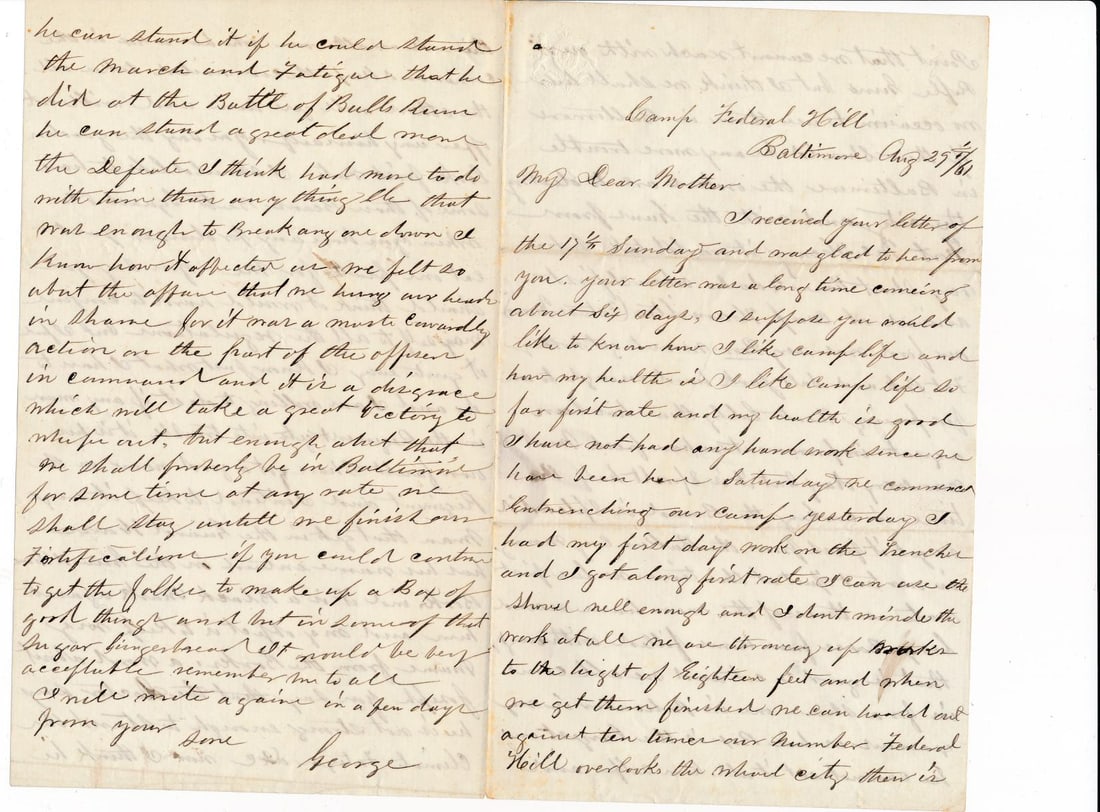 Camp Federal Hill
Baltimore Aug 29th/61
My Dear Mother
I received your letter of
the 17th Sunday and was glad to hear from
you. your letter was a long time comeing
about Six days, I suppose you would
like to know how I like camp life and
how my health is I like camp life so
far first rate and my health is good
I have not had any hard work since we
have been here Saturday we commenced
Entrenching our camp yesterday I
had my first days work on the Trenches
and I got along first rate I can use the
shovel well enough and I dont minde the
work at all we are throwing up works
to the hight of Eighteen feet and when
we get them finished we can hould out
against ten times our number Federal
Hill overlooks the whole city there is
he can stand it if he could stand
the march and Fatigue that he
did at the Battl of Bulls Runn
he can stand a great deal more
the Defeate I think had more to do
with him than any thing Els that
was enough to Break any one down I
know how it affected us we felt so
abut the affare that we hung our heads
in shame for it was a most Cowardly
action on the part of the offiser
in command and it is a disgrace
which will take a great Victory to
whipe out, but enough abut that
we shall proberly be in Baltimore
for some time at any rate we
shall stay untill we finish our
Fortifications if you could contrive
to get the folks to make up a Box of
good things and but in some of that
Sugar Gingerbread It would be very
acceptable remember me to all
I will write againe in a few days
from your sone
George